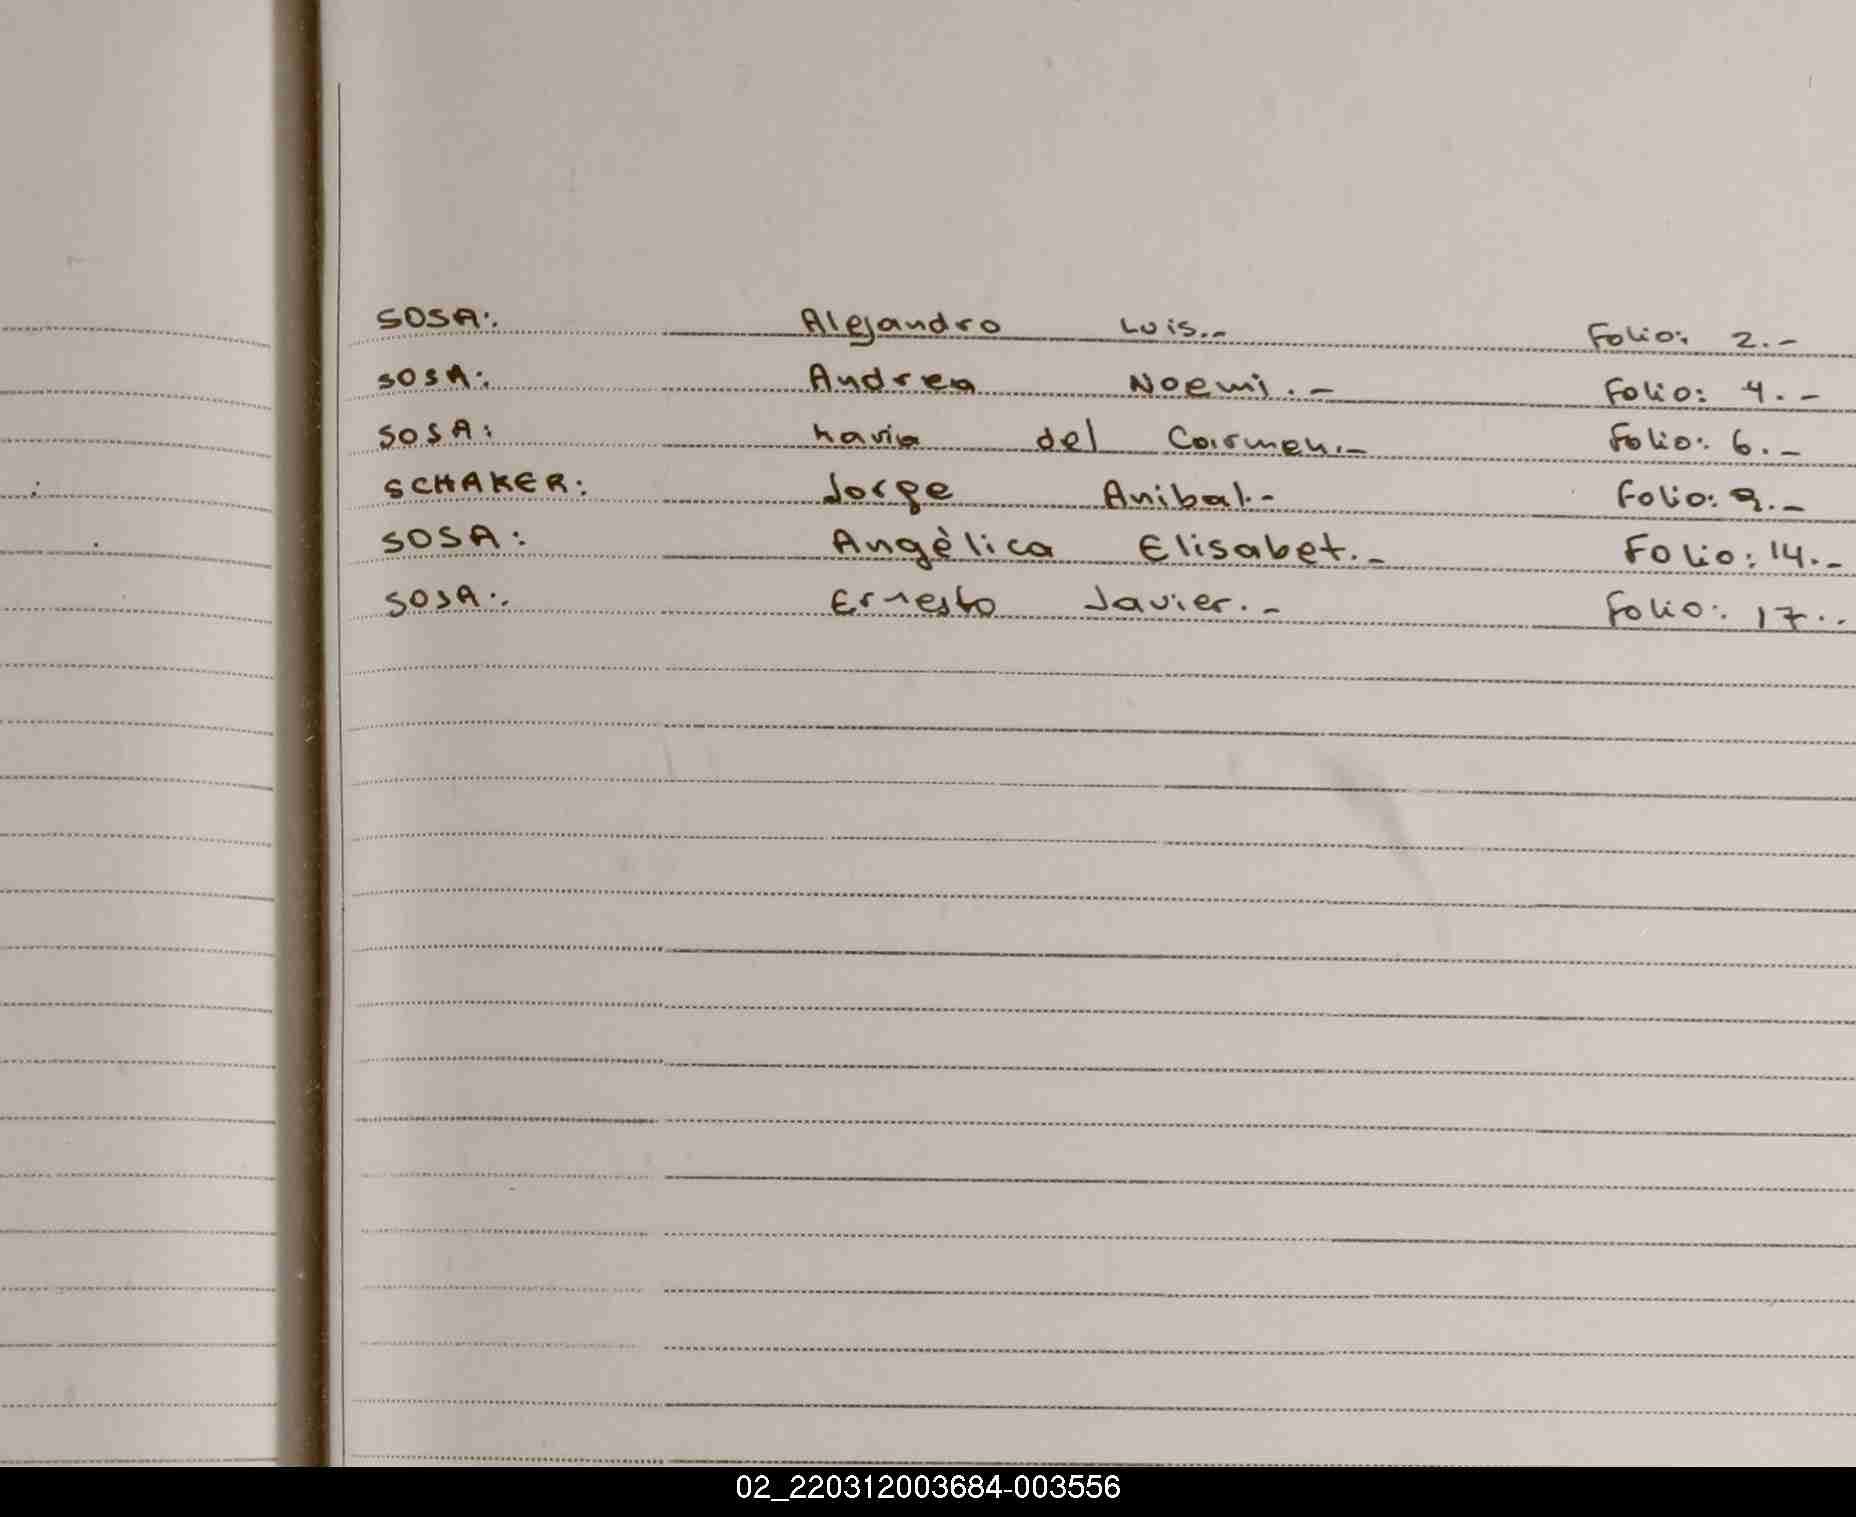 SOSA: Alejandro Luis.-  Folio: 2.-
SOSA: Andrea Noemi.-  Folio: 4.-
SOSA: Maria del Carmen.-  Folio: 6.-
SCHAKER: Jorge Anibal.-  Folio: 9.-
SOSA: Angèlica Elisabet.-  Folio: 14.-
SOSA: Ernesto Javier.-  Folio: 17.-
02_220312003684-003556